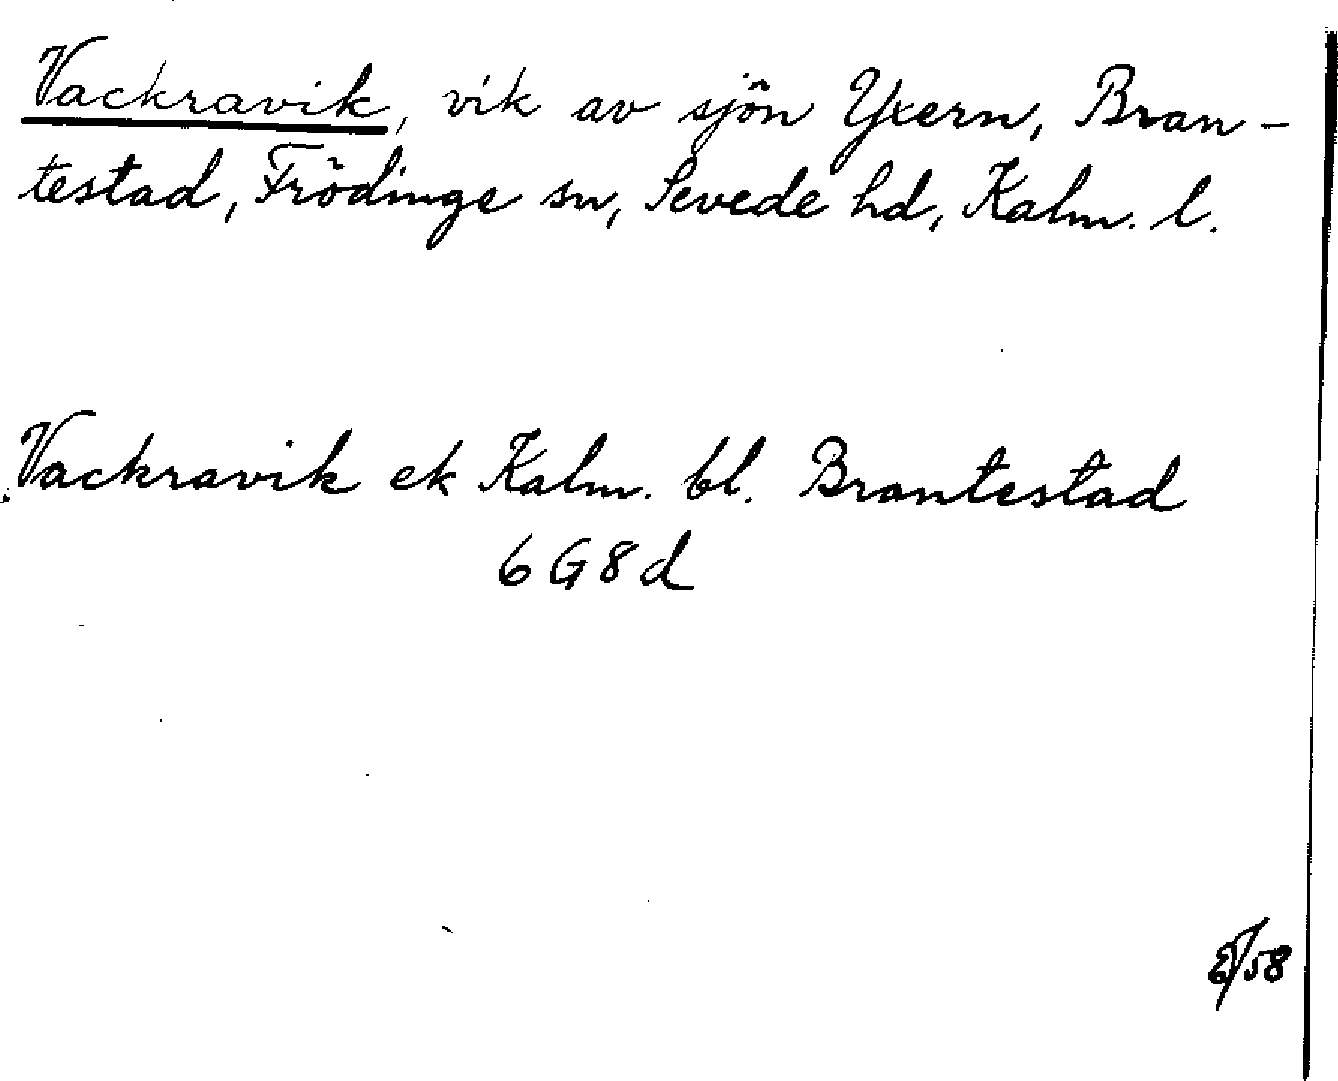 Vackravik, vik av sjön Yxern, Bran-
testad, Frödinge sn, Sevede hd, Kalm. l.
Vackravik ek Kalm. bl. Brantestad
6G8d
58